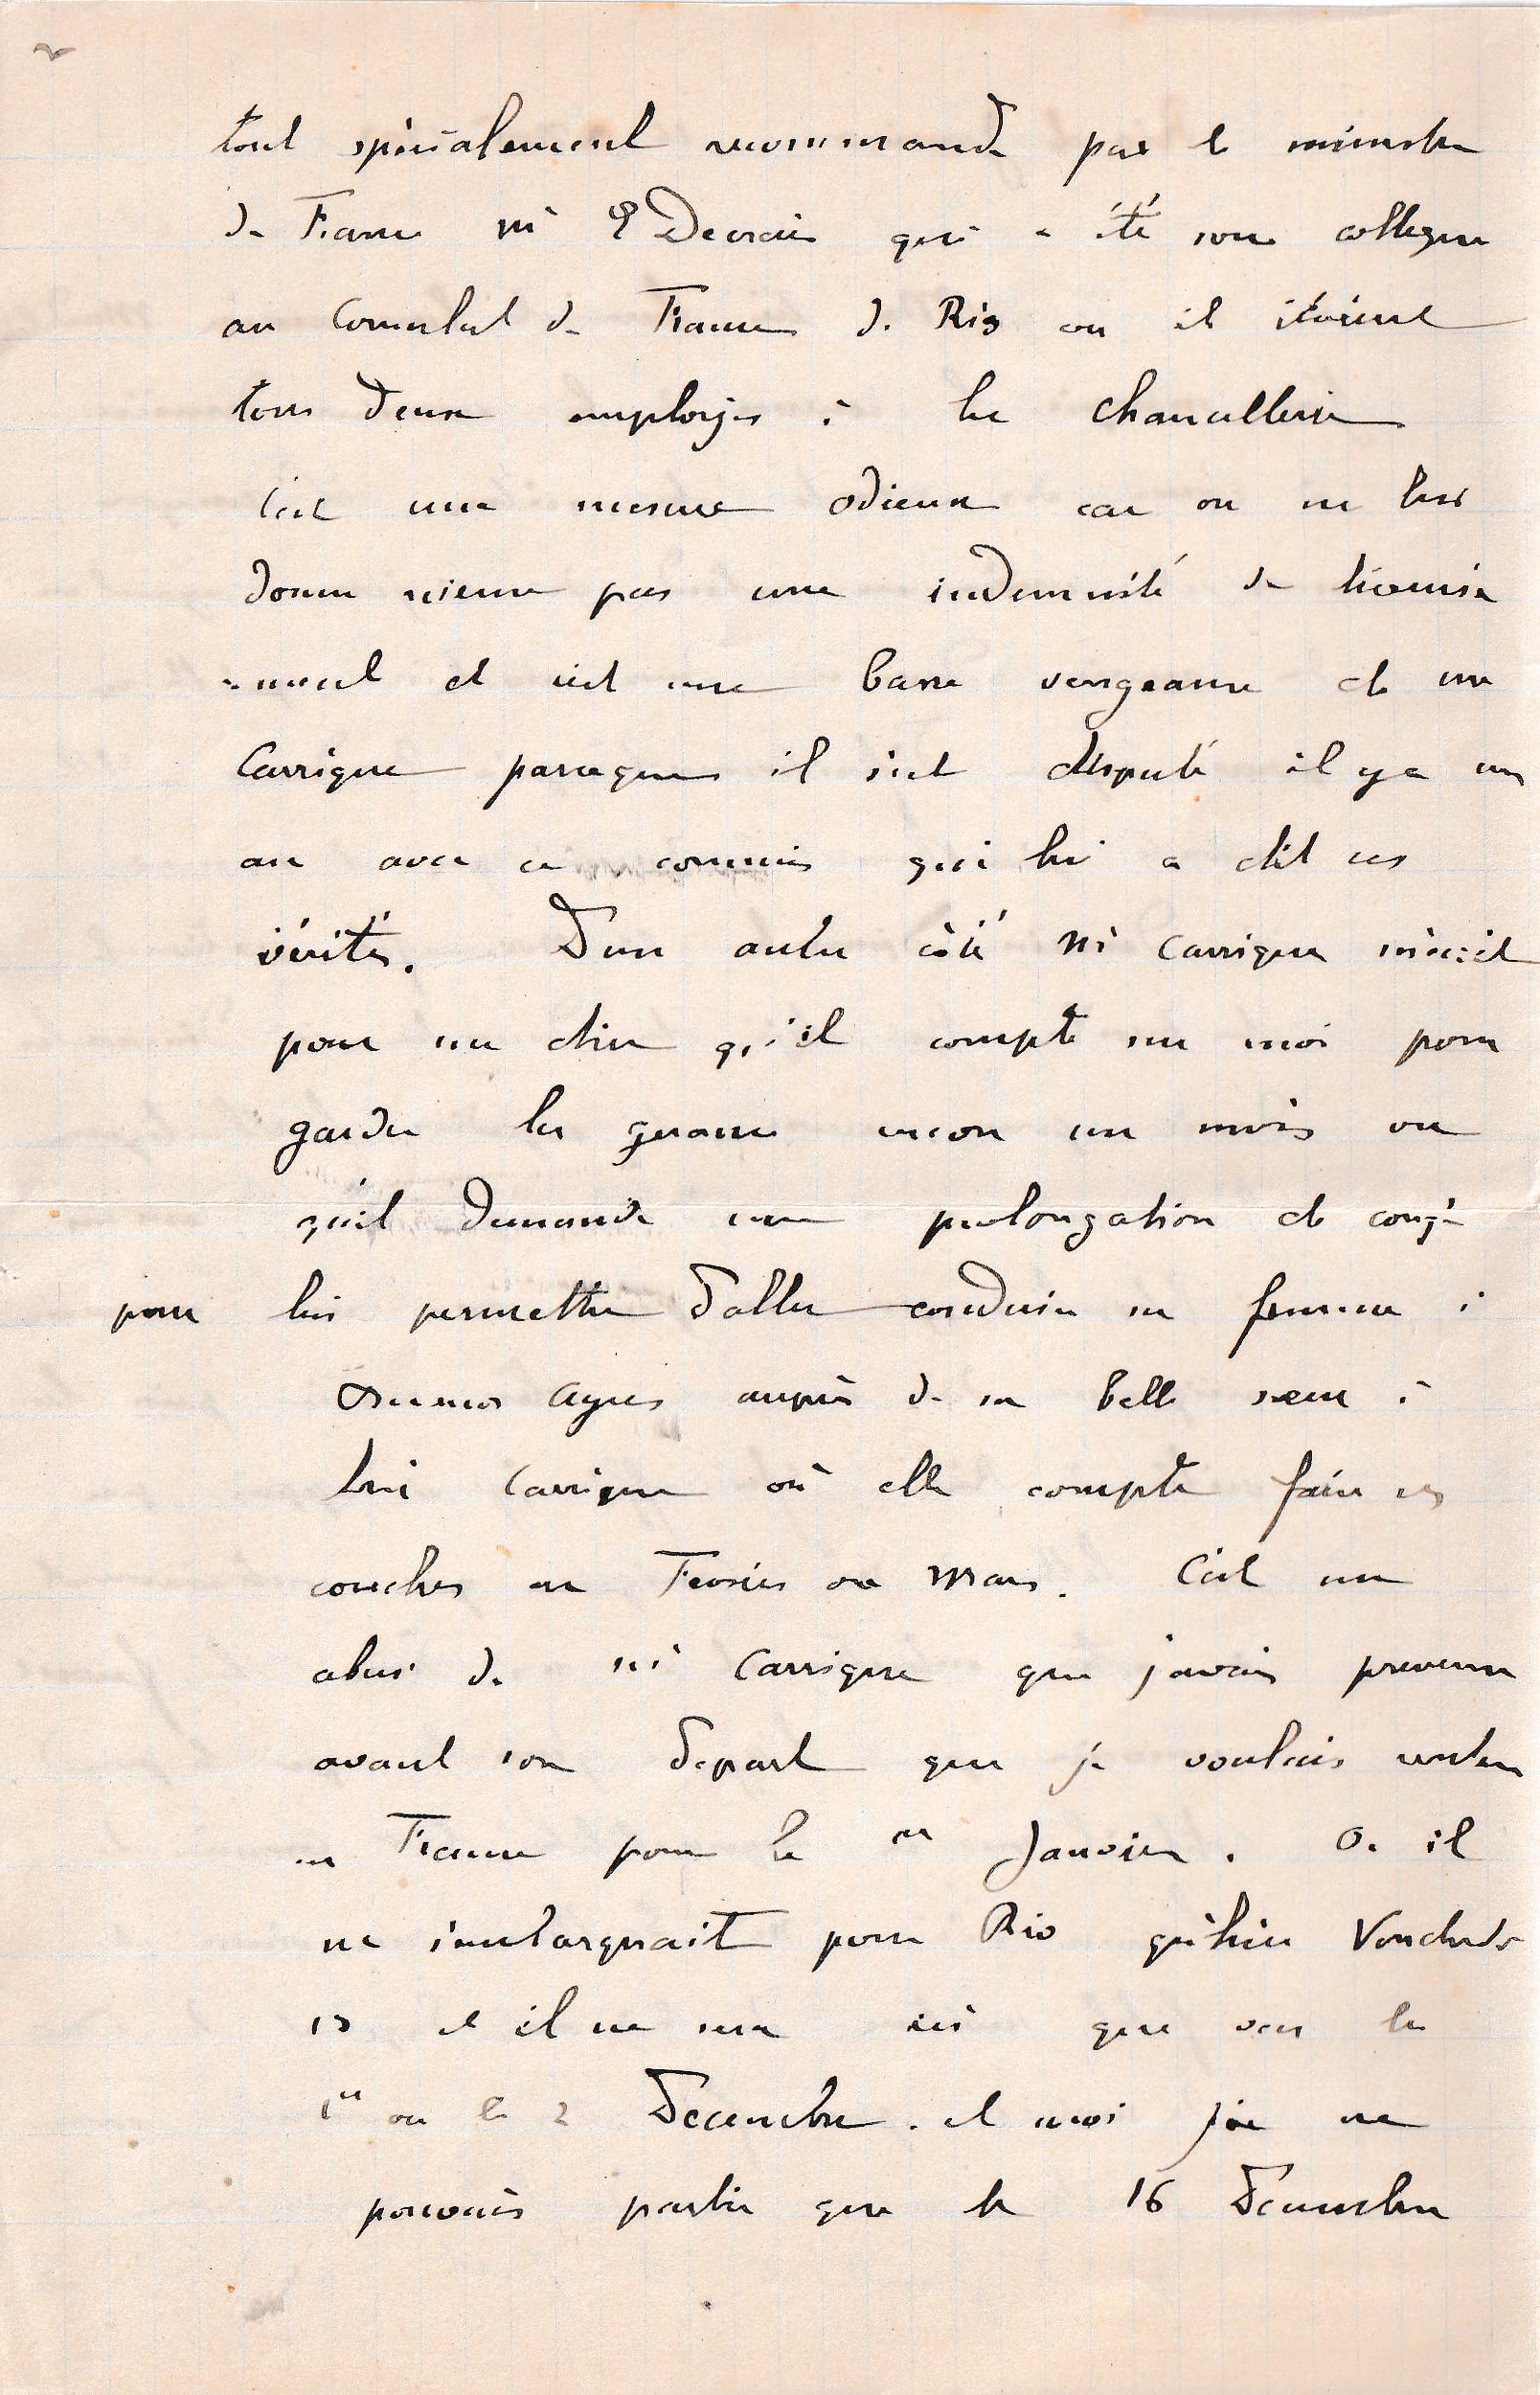 2
tout spécialement recommandé par le ministre
de France Mr Decrais qui a été son collegue
au Consulat de France de Rio ou il étaient
tous deux employés à la chancellerie
C'est une mesure odieuse car on ne lui
donne même pas une indemnité de licencie
-ment et c'est une basse vengeance de Mr
Carrique parceque il s'est disputé il y a un
an avec ce commis qui lui a dit ses
vérités. D'un autre côté Mr Carrique m'écrit
pour me dire qu'il compte sur moi pour
garder la gérance encore un mois ou
qu'il demande une prolongation de congé
pour lui permettre d'aller conduire sa femme à
Buenos Ayres auprès de sa belle sœur à
lui Carrique où elle compte faire ses
couches en Fevrier ou Mars. C'est un
abus de Mr Carrique que j'avais prevenu
avant son depart que je voulais rentrer
en France pour le 1er Janvier. Or il
ne s'embarquait pour Rio qu'hier Vendredi
13 et il ne sera ici que vers le
1er ou le 2 Decembre. et moi je ne
pouvais partir que le 16 Decembre